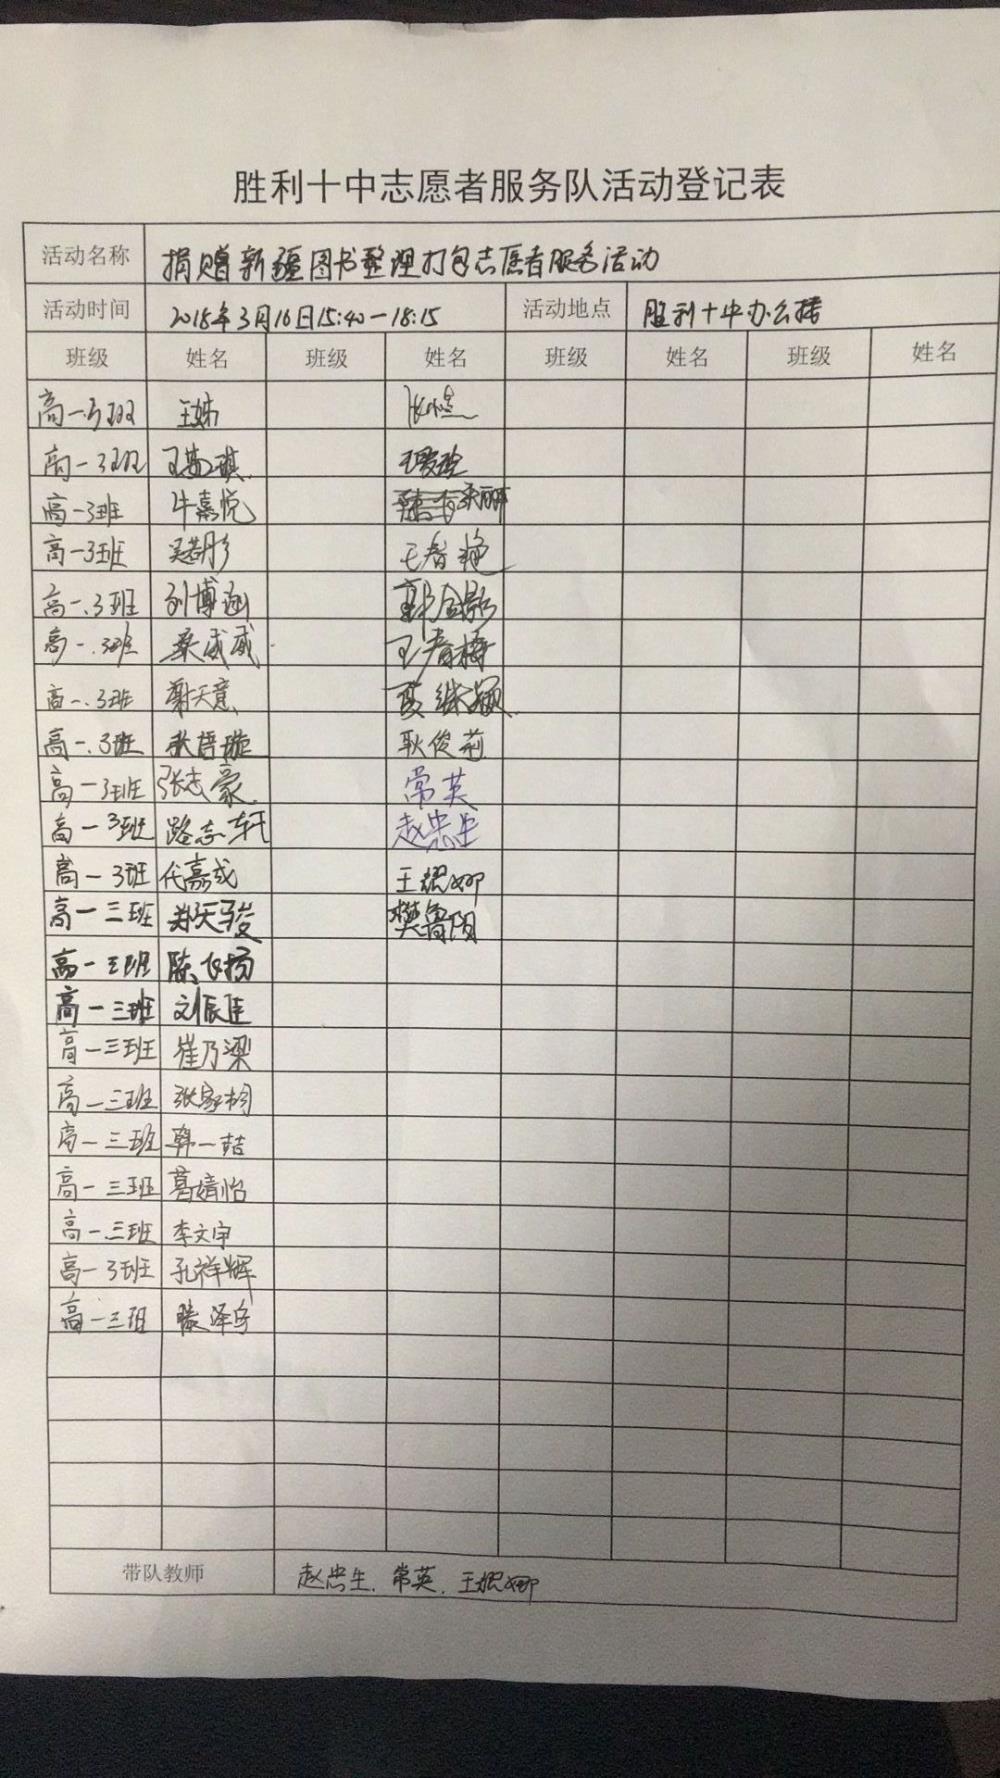 胜利十中志愿者服务队活动登记表
活动名称 捐赠新疆图书整理打包志愿者服务活动
活动时间 2018年3月16日15:40—18:15 活动地点 胜利十中办公楼
班级 姓名 班级 姓名 班级 姓名 班级 姓名
高一.3班 王姊
高一3班
高一3班 牛嘉悦
高一3班 吴若彤 王春艳
高一.3班 刘博涵 郭金影
高一.3班 桑威威 王春梅
高一.3班 谢天意 夏继颖
高一.3班 耿俊莉
高一3班 张志豪 常英
高一3班 路志轩 赵忠生
高一3班 代嘉成 王娜
高一三班 郑天骏 樊鲁阳
高一三班 陈飞扬
高一三班 刘辰佳
高一三班 崔乃梁
高一三班 张家栩
高一三班 韩一喆
高一三班 葛婧怡
高一三班 李文宇
高一3班 孔祥辉
高一三班 滕泽宇
带队教师 赵忠生、常英、王娜